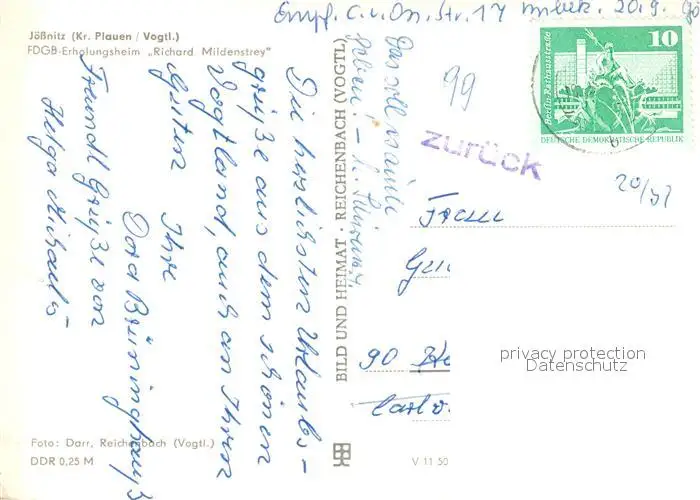 Empf. C.v.On. Str. 17 unbek. 20.9.
Jößnitz (Kr. Plauen / Vogtl.)
FDGB-Erholungsheim „Richard Mildenstrey"
Die herzlichsten Urlaubs-
grüße aus dem schönen
Vogtland, auch an Ihren
Guten Ihre
Dora Brüninghaus
Freundl Grüße von
Helga Michaels
Foto: Darr, Reichenbach (Vogtl.)
DDR 0,25 M
BILD UND HEIMAT · REICHENBACH (VOGTL
V 11 50
Das soll
99
zurück
10
Berlin-Rathausstraße
DEUTSCHE DEMOKRATISCHE REPUBLIK
20/
Frau
90
privacy protection
Datenschutz